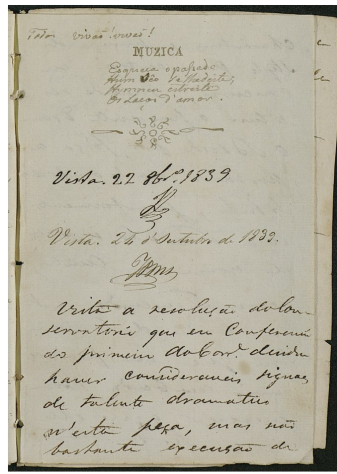 Todos vivas! vivas!
MUZICA
Esqueça o passado
Hymineu estreite
Os laços d'amor.
Vista. 22 8br.º 1839
Vista. 24 d'Outubro de 1839.
Vista a resolução do Con-
servatorio que em Conferencia
do primeiro do Corr.e decidiu
haver consideraveis signaes
de talento dramatico
n'esta peça, mas não
bastante execução de